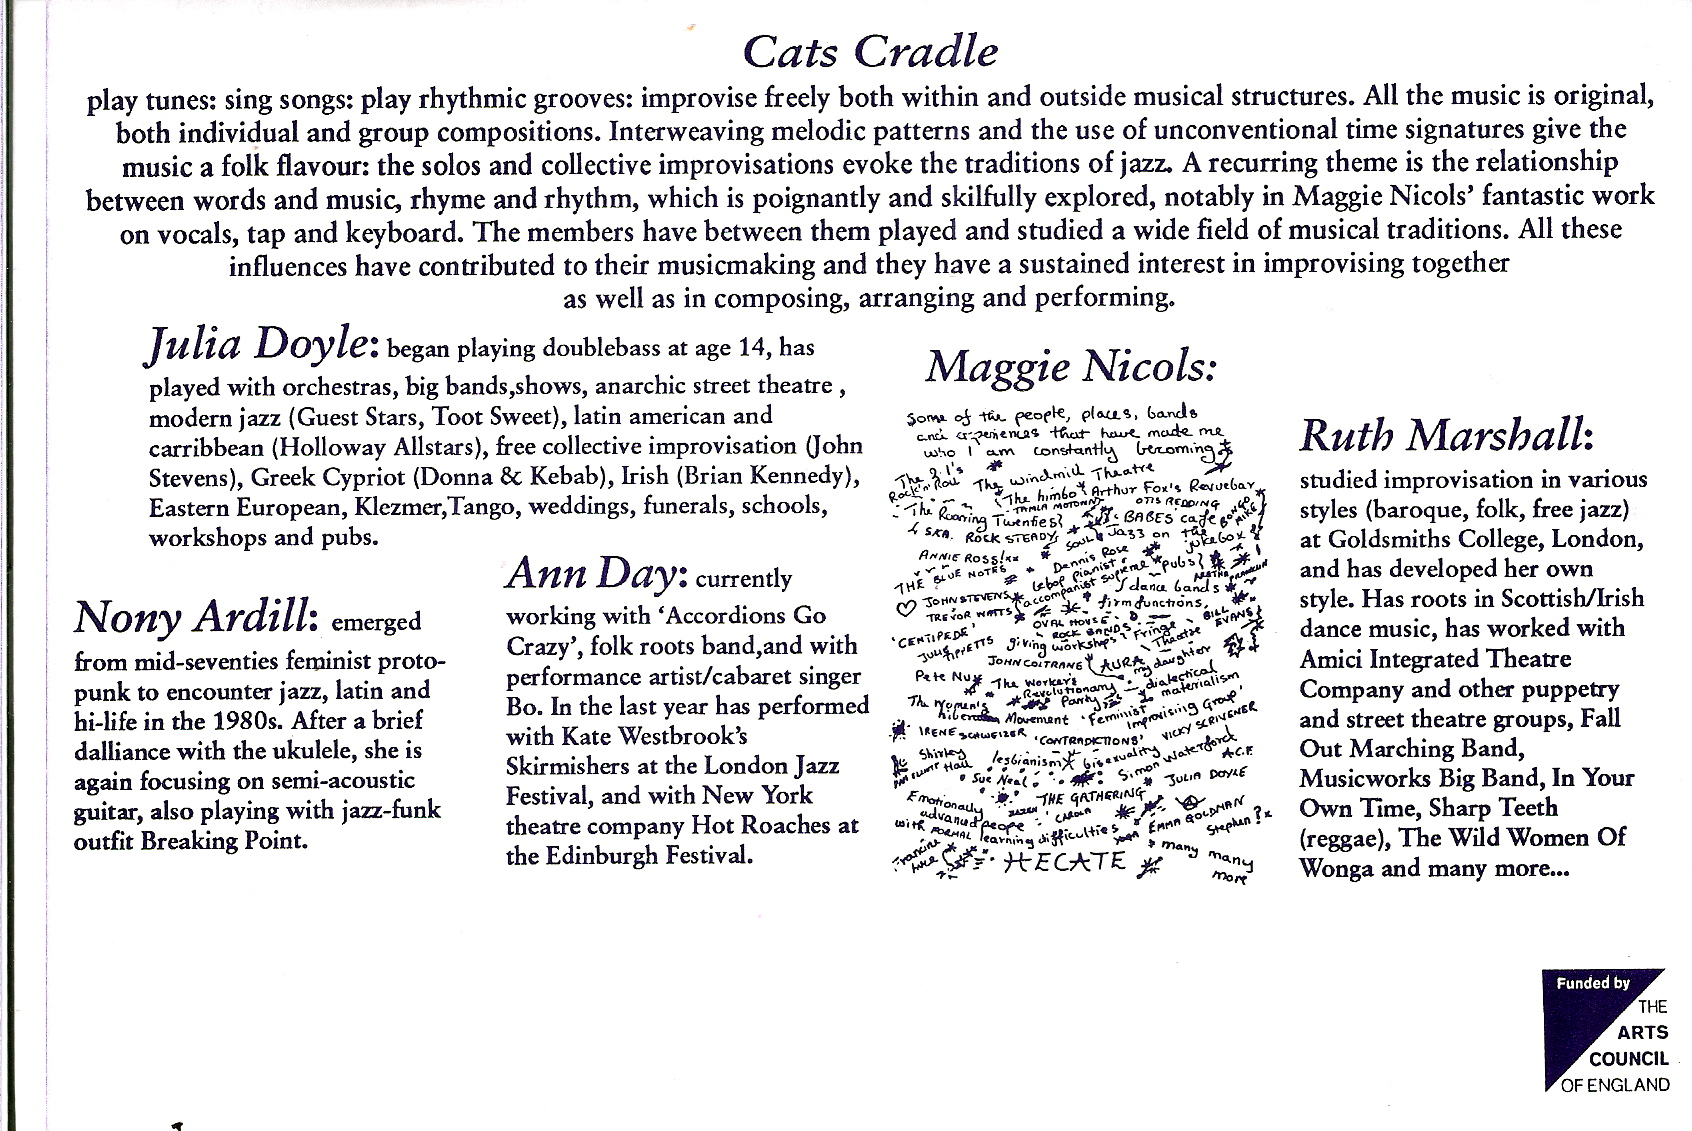 Cats Cradle
play tunes: sing songs: play rhythmic grooves: improvise freely both within and outside musical structures. All the music is original,
both individual and group compositions. Interweaving melodic patterns and the use of unconventional time signatures give the
music a folk flavour: the solos and collective improvisations evoke the traditions of jazz. A recurring theme is the relationship
between words and music, rhyme and rhythm, which is poignantly and skilfully explored, notably in Maggie Nicols' fantastic work
on vocals, tap and keyboard. The members have between them played and studied a wide field of musical traditions. All these
influences have contributed to their musicmaking and they have a sustained interest in improvising together
as well as in composing, arranging and performing.
Julia Doyle: began playing doublebass at age 14, has
played with orchestras, big bands,shows, anarchic street theatre ,
modern jazz (Guest Stars, Toot Sweet), latin american and
carribbean (Holloway Allstars), free collective improvisation (John
Stevens), Greek Cypriot (Donna & Kebab), Irish (Brian Kennedy),
Eastern European, Klezmer,Tango, weddings, funerals, schools,
workshops and pubs.
Nony Ardill: emerged
from mid-seventies feminist proto-
punk to encounter jazz, latin and
hi-life in the 1980s. After a brief
dalliance with the ukulele, she is
again focusing on semi-acoustic
guitar, also playing with jazz-funk
outfit Breaking Point.
Ann Day: currently
working with 'Accordions Go
Crazy', folk roots band,and with
performance artist/cabaret singer
Bo. In the last year has performed
with Kate Westbrook's
Skirmishers at the London Jazz
Festival, and with New York
theatre company Hot Roaches at
the Edinburgh Festival.
Maggie Nicols:
Some of the people, places, bands
and experiences that have made me
who I am constantly becoming
The 2 I's
Rock'n'Roll The Windmill Theatre
(The himbo) Arthur Fox's Revuebar
TAMLA MOTOWN OTIS REDDING
The Roaring Twenties BABES cafe BONGO MIKE
& SKA. ROCK STEADY, SOUL JAZZ on the jukebox
ANNIE ROSS Dennis Rose
THE BLUE NOTES bebop pianist & accompanist supreme pubs ARETHA FRANKLIN
JOHN STEVENS dance bands
TREVOR WATTS firm functions,
OVAL HOUSE BILL EVANS
'CENTIPEDE' ROCK BANDS Fringe Theatre
JULIE TIPPETTS giving workshops
JOHN COLTRANE AURA my daughter
Pete Nu The Worker's Revolutionary Party dialectical materialism
The Women's Liberation Movement 'Feminist Improvising Group'
IRENE SCHWEIZER 'CONTRADICTIONS' VICKY SCRIVENER
Shirley Hall lesbianism bisexuality Simon Waterford A.C.E
Sue Neal JULIA DOYLE
THE GATHERING
Emotionally advanced people CAROLA EMMA GOLDMAN
with FORMAL learning difficulties Stephen
Francine Luce HECATE & many many
more
Ruth Marshall:
studied improvisation in various
styles (baroque, folk, free jazz)
at Goldsmiths College, London,
and has developed her own
style. Has roots in Scottish/Irish
dance music, has worked with
Amici Integrated Theatre
Company and other puppetry
and street theatre groups, Fall
Out Marching Band,
Musicworks Big Band, In Your
Own Time, Sharp Teeth
(reggae), The Wild Women Of
Wonga and many more...
Funded by
THE
ARTS
COUNCIL
OF ENGLAND